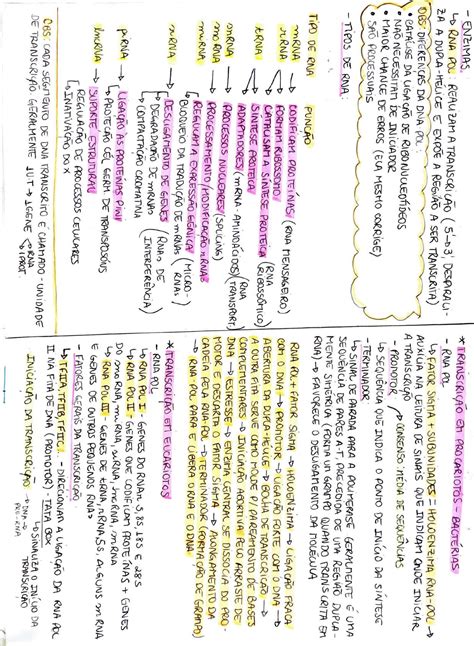 - ENZIMAS:
↳ RNA POL: REALIZAM A TRANSCRIÇÃO (5'→3'. DESPARALI-
ZA A DUPLA-HÉLICE E EXPÕE A REGIÃO A SER TRANSCRITA)
OBS: DIFERENÇAS DA DNA POL:
• CATÁLISE DA LIGAÇÃO DE RIBONUCLEOTÍDEOS
• NÃO NECESSITAM DE INDICADOR
• MAIOR CHANCE DE ERROS (ELA MESMO CORRIGE)
• SÃO PROCESSUAIS
- TIPOS DE RNA:
TIPO DE RNA FUNÇÃO
mRNA → CODIFICAM PROTEÍNAS (RNA MENSAGEIRO)
rRNA → FORMAM RIBOSSOMO/
CATALISAM A SÍNTESE PROTEICA (RNA RIBOSSÔMICO)
tRNA → SÍNTESE PROTEICA/
ADAPTADORES (mRNA AMINOÁCIDOS) (RNA TRANSPORT.)
→ PROCESSOS NUCLEARES (SPLICING)
→ PROCESSAMENTO/MODIFICAÇÃO rRNAs
→ REGULAM A EXPRESSÃO GÊNICA/ (MICRO-
BLOQUEIO DA TRADUÇÃO DE mRNAs RNAs)
→ DESLIGAMENTO DE GENES/ (RNAs DE
• DEGRADAÇÃO DE mRNAs INTERFERÊNCIA)
• COMPACTAÇÃO CROMATINA
piRNA → LIGAÇÃO ÀS PROTEÍNAS PIWI
↳ PROTEÇÃO CÉL. GERM. DE TRANSPOSONS
→ SUPORTE ESTRUTURAL/
REGULAÇÃO DE PROCESSOS CELULARES
↳ INATIVAÇÃO DO X
OBS: CADA SEGMENTO DE DNA TRANSCRITO É CHAMADO: UNIDADE
DE TRANSCRIÇÃO. GERALMENTE 1 U.T → 1 GENE
* TRANSCRIÇÃO EM PROCARIOTOS - BACTÉRIAS
- RNA POL
↳ FATOR SIGMA + SUBUNIDADES = HOLOENZIMA RNA-POL →
AUXILIA NA LEITURA DE SINAIS QUE INDICAM ONDE INICIAR
A TRANSCRIÇÃO
- PROMOTOR → CONSENSO: MÉDIA DE SEQUÊNCIAS
↳ SEQUÊNCIA QUE INDICA O PONTO DE INÍCIO DA SÍNTESE
- TERMINADOR
↳ SINAL DE PARADA PARA A POLIMERASE GERALMENTE É UMA
SEQUÊNCIA DE PARES A-T, PRECEDIDA DE UMA REGIÃO DUPLA-
MENTE SIMÉTRICA (FORMA UM GRAMPO QUANDO TRANSCRITA EM
RNA) → FAVORECE O DESLIGAMENTO DA MOLÉCULA
RNA POL + FATOR SIGMA → HOLOENZIMA → LIGAÇÃO FRACA
COM O DNA → PROMOTOR → LIGAÇÃO FORTE COM O DNA →
ABERTURA DA DUPLA-HÉLICE →
A OUTRA FITA SERVE COMO MOLDE P/ PAREAMENTO DE BASES
COMPLEMENTARES → INICIAÇÃO ABORTIVA
DNA → ESTRESSE → ENZIMA CENTRAL SE DISSOCIA DO PRO-
MOTOR E DESCARTA O FATOR SIGMA → ALONGAMENTO DA
CADEIA PELA RNA-POL → TERMINADOR (FORMAÇÃO DE GRAMPO)
→ RNA-POL PARA E LIBERA O RNA E O DNA
* TRANSCRIÇÃO EM EUCARIOTOS
- RNA POL
↳ RNA POL I - GENES DO RNAr 5,8S, 18S E 28S
↳ RNA POL II - GENES QUE CODIFICAM PROTEÍNAS + GENES
↳ RNA POL III - GENES DE tRNA, rRNA 5S, ALGUNS snRNA
E GENES DE OUTROS PEQUENOS RNAs
- FATORES GERAIS DA TRANSCRIÇÃO
- DIRECIONAM A LIGAÇÃO DA RNA POL
II NA FITA DE DNA (PROMOTOR) - TATA BOX
↳ SINALIZA O INÍCIO DA
TRANSCRIÇÃO
INICIAÇÃO DA TRANSCRIÇÃO → DNA →
PRÉ-RNA